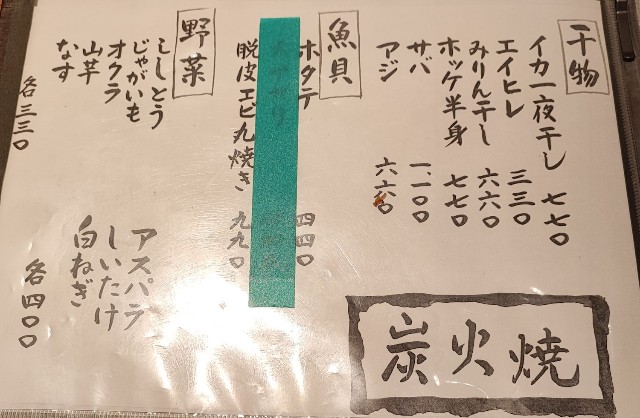 干物
イカ一夜干し 七七〇
エイヒレ 三三〇
みりん干し 六六〇
ホッケ半身 七七〇
サバ 一、一〇〇
アジ 六六〇
魚貝
ホタテ 四四〇
脱皮エビ丸焼き 九九〇
野菜
ししとう
じゃがいも
オクラ
山芋
なす
各三三〇
アスパラ
しいたけ
白ねぎ
各四〇〇
炭火焼